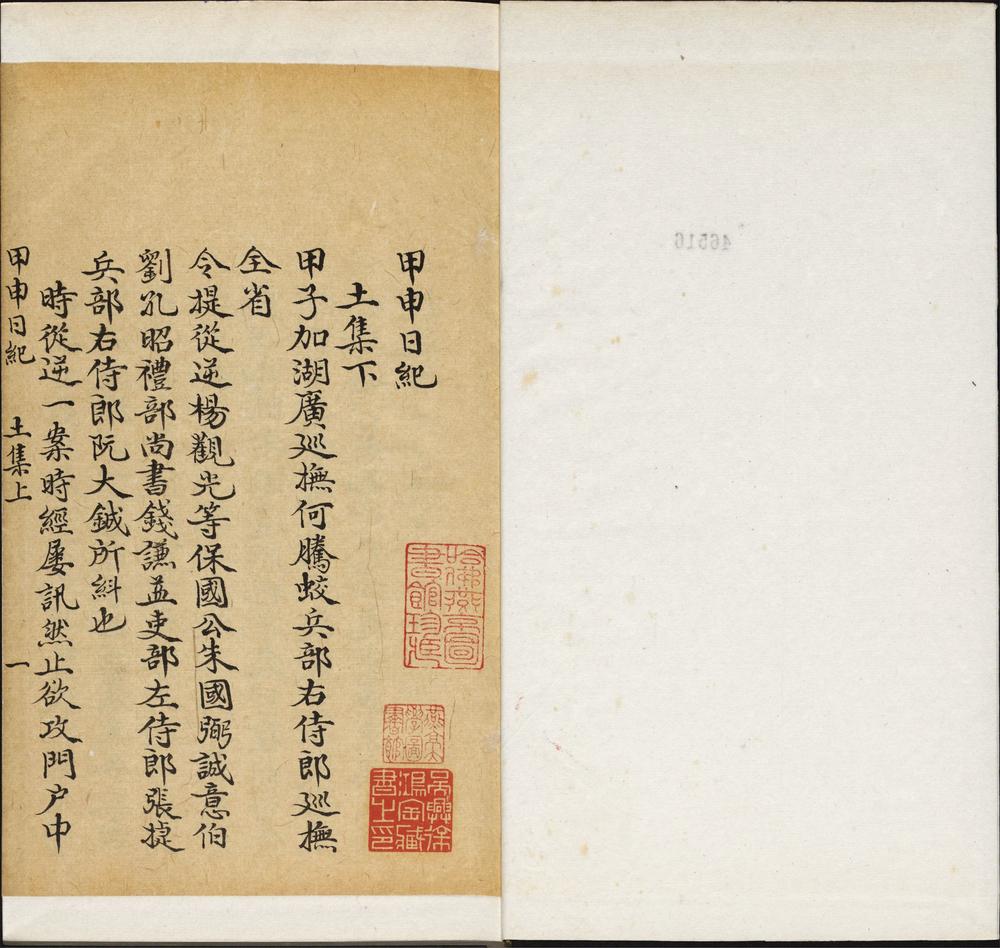 46516
甲申日紀
土集下
甲子加湖廣巡撫何騰蛟兵部右侍郎巡撫
全省
令提從逆楊觀光等保國公朱國弼誠意伯
劉孔昭禮部尚書錢謙益吏部左侍郎張捷
兵部右侍郎阮大鋮所糾也
時從逆一案時經屡訊然止欲攻門户中
甲申日紀 土集上 一
哈佛燕京圖書館珍臧
燕京學圖書館
吳興徐鴻寶藏書之印